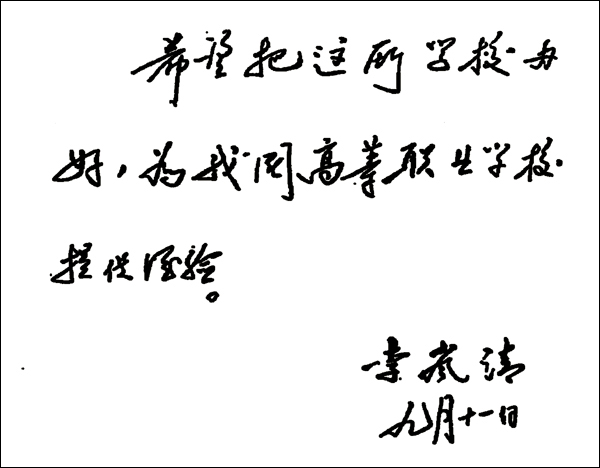 希望把这所学校办
好，为我国高等职业学校
提供经验。
李岚清
九月十一日